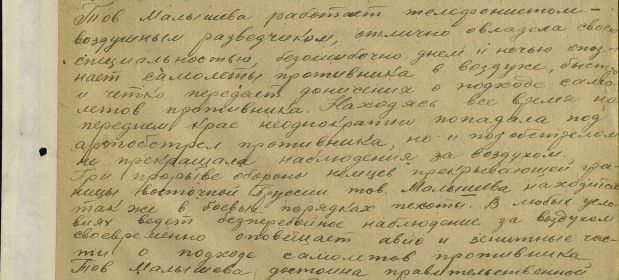 Тов Малышева работает телефонистом-
воздушным разведчиком, отлично овладела своей
специальностью, безошибочно днем и ночью опоз-
нает самолеты противника в воздухе, быстро
и четко передает донисения о подходе само-
летов противника. Находясь все время на
переднем крае неоднократно попадала под
артобстрел противника, но и под обстрелом
не прекращала наблюдения за воздухом.
При прорыве обороны немцев прекрывающей гра-
ницы восточной Пруссии тов. Малышева находится
так же в боевых порядках пехоты. В любых усло-
виях ведет безперебойное наблюдение за воздухом
своевременно оповещает авио и зенитные час-
ти о подходе самолетов противника
Тов Малышева достойна правительственной